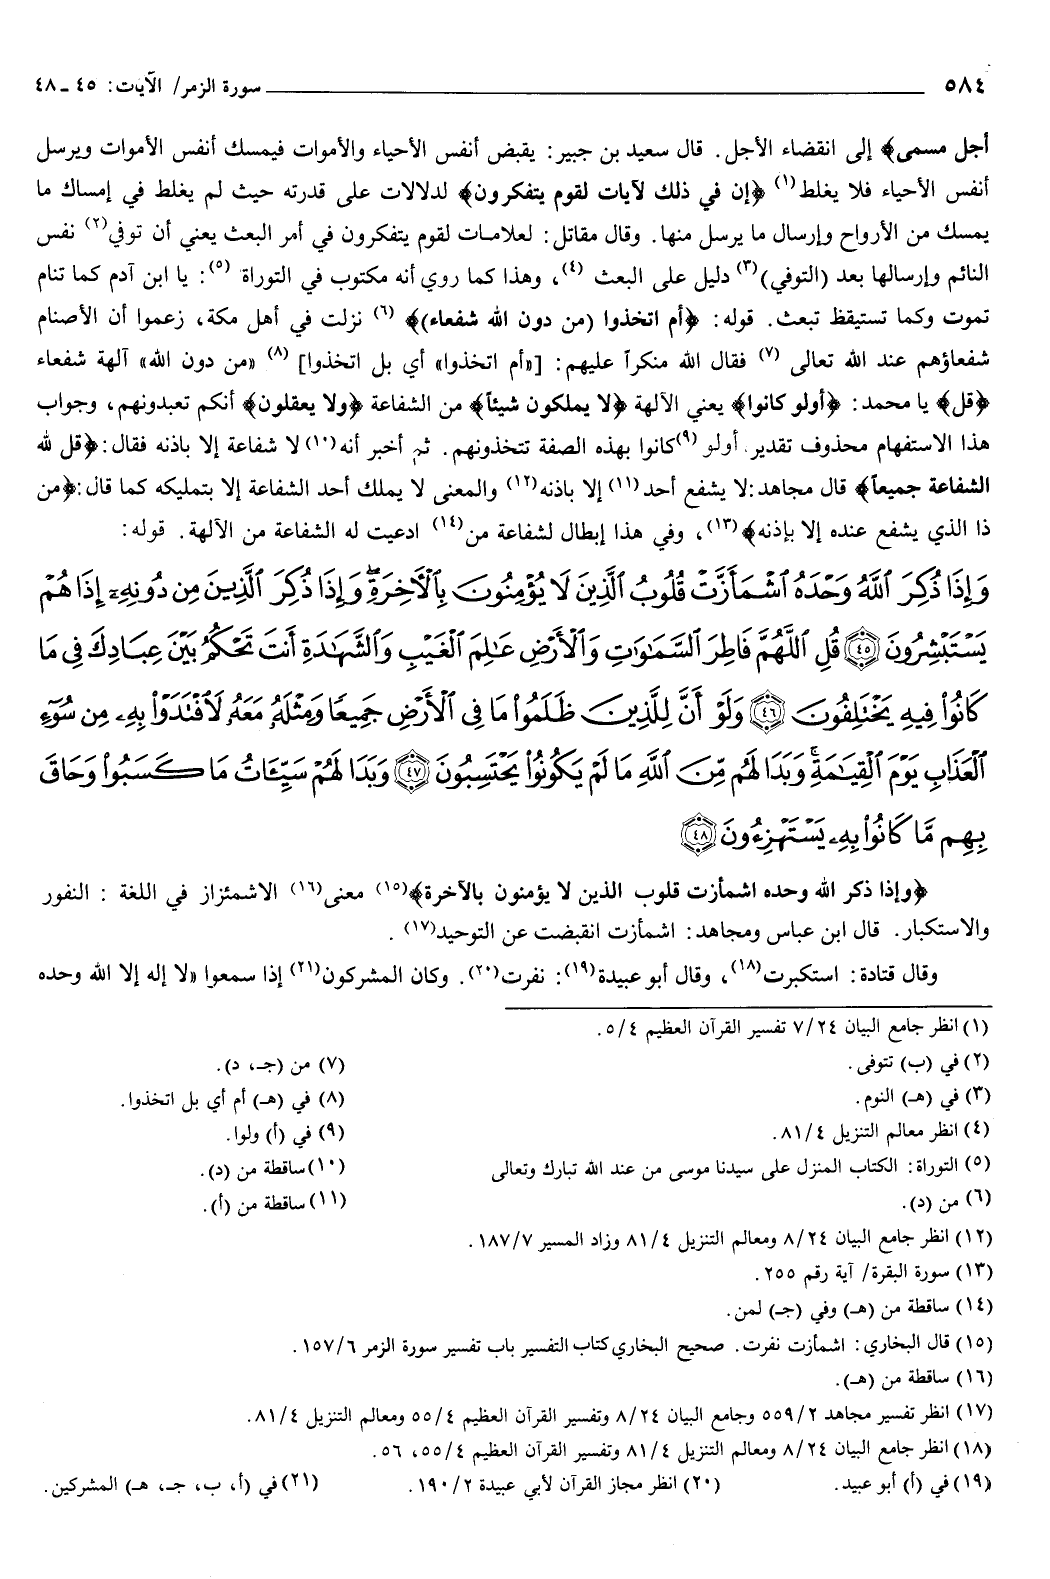 ٥٨٤ سورة الزمر/ الآيات: ٤٥ ـ ٤٨
أجل مسمى﴾ إلى انقضاء الأجل. قال سعيد بن جبير: يقبض أنفس الأحياء والأموات فيمسك أنفس الأموات ويرسل
أنفس الأحياء فلا يغلط(١) ﴿إن في ذلك لآيات لقوم يتفكرون﴾ لدلالات على قدرته حيث لم يغلط في إمساك ما
يمسك من الأرواح وإرسال ما يرسل منها. وقال مقاتل: لعلامات لقوم يتفكرون في أمر البعث يعني أن توفي(٢) نفس
النائم وإرسالها بعد (التوفي)(٣) دليل على البعث (٤)، وهذا كما روي أنه مكتوب في التوراة (٥): يا ابن آدم كما تنام
تموت وكما تستيقظ تبعث. قوله: ﴿أم اتخذوا (من دون الله شفعاء)﴾ (٦) نزلت في أهل مكة، زعموا أن الأصنام
شفعاؤهم عند الله تعالى (٧) فقال الله منكراً عليهم: [«أم اتخذوا» أي بل اتخذوا] (٨) «من دون الله» آلهة شفعاء
﴿قل﴾ يا محمد: ﴿أولو كانوا﴾ يعني الآلهة ﴿لا يملكون شيئاً﴾ من الشفاعة ﴿ولا يعقلون﴾ أنكم تعبدونهم، وجواب
هذا الاستفهام محذوف تقدير. أولو (٩)كانوا بهذه الصفة تتخذونهم. ثم أخبر أنه(١٠)لا شفاعة إلا باذنه فقال:﴿قل لله
الشفاعة جميعاً﴾ قال مجاهد:لا يشفع أحد(١١) إلا باذنه(١٢) والمعنى لا يملك أحد الشفاعة إلا بتمليكه كما قال:﴿من
ذا الذي يشفع عنده إلا بإذنه﴾(١٣)، وفي هذا إبطال لشفاعة من(١٤) ادعيت له الشفاعة من الآلهة. قوله:
وَإِذَا ذُكِرَ ٱللَّهُ وَحْدَهُ ٱشْمَأَزَّتْ قُلُوبُ ٱلَّذِينَ لَا يُؤْمِنُونَ بِٱلْأَخِرَةِۖ وَإِذَا ذُكِرَ ٱلَّذِينَ مِن دُونِهِۦٓ إِذَا هُمْ
يَسْتَبْشِرُونَ ﴿٤٥﴾ قُلِ ٱللَّهُمَّ فَاطِرَ ٱلسَّمَٰوَٰتِ وَٱلْأَرْضِ عَٰلِمَ ٱلْغَيْبِ وَٱلشَّهَٰدَةِ أَنتَ تَحْكُمُ بَيْنَ عِبَادِكَ فِى مَا
كَانُوا۟ فِيهِ يَخْتَلِفُونَ ﴿٤٦﴾ وَلَوْ أَنَّ لِلَّذِينَ ظَلَمُوا۟ مَا فِى ٱلْأَرْضِ جَمِيعًا وَمِثْلَهُۥ مَعَهُۥ لَٱفْتَدَوْا۟ بِهِۦ مِن سُوٓءِ
ٱلْعَذَابِ يَوْمَ ٱلْقِيَٰمَةِۚ وَبَدَا لَهُم مِّنَ ٱللَّهِ مَا لَمْ يَكُونُوا۟ يَحْتَسِبُونَ ﴿٤٧﴾ وَبَدَا لَهُمْ سَيِّئَاتُ مَا كَسَبُوا۟ وَحَاقَ
بِهِم مَّا كَانُوا۟ بِهِۦ يَسْتَهْزِءُونَ ﴿٤٨﴾
﴿وإذا ذكر الله وحده اشمأزت قلوب الذين لا يؤمنون بالآخرة﴾(١٥) معنى(١٦) الاشمئزاز في اللغة : النفور
والاستكبار. قال ابن عباس ومجاهد: اشمأزت انقبضت عن التوحيد(١٧) .
وقال قتادة: استكبرت(١٨)، وقال أبو عبيدة(١٩): نفرت(٢٠). وكان المشركون(٢١) إذا سمعوا «لا إله إلا الله وحده
(١) انظر جامع البيان ٧/٢٤ تفسير القرآن العظيم ٥/٤.
(٢) في (ب) تتوفى. (٧) من (جـ، د).
(٣) في (هـ) النوم. (٨) في (هـ) أم أي بل اتخذوا.
(٤) انظر معالم التنزيل ٨١/٤. (٩) في (أ) ولوا.
(٥) التوراة: الكتاب المنزل على سيدنا موسى من عند الله تبارك وتعالى (١٠)ساقطة من (د).
(٦) من (د). (١١) ساقطة من (أ).
(١٢) انظر جامع البيان ٨/٢٤ ومعالم التنزيل ٨١/٤ وزاد المسير ١٨٧/٧.
(١٣) سورة البقرة/ آية رقم ٢٥٥.
(١٤) ساقطة من (هـ) وفي (جـ) لمن.
(١٥) قال البخاري: اشمأزت نفرت. صحيح البخاري كتاب التفسير باب تفسير سورة الزمر ١٥٧/٦.
(١٦) ساقطة من (هـ).
(١٧) انظر تفسير مجاهد ٥٥٩/٢ وجامع البيان ٨/٢٤ وتفسير القرآن العظيم ٥٥/٤ ومعالم التنزيل ٨١/٤.
(١٨) انظر جامع البيان ٨/٢٤ ومعالم التنزيل ٨١/٤ وتفسير القرآن العظيم ٥٥/٤، ٥٦.
(١٩) في (أ) أبو عبيد. (٢٠) انظر مجاز القرآن لأبي عبيدة ١٩٠/٢. (٢١) في (أ، ب، جـ، هـ) المشركين.